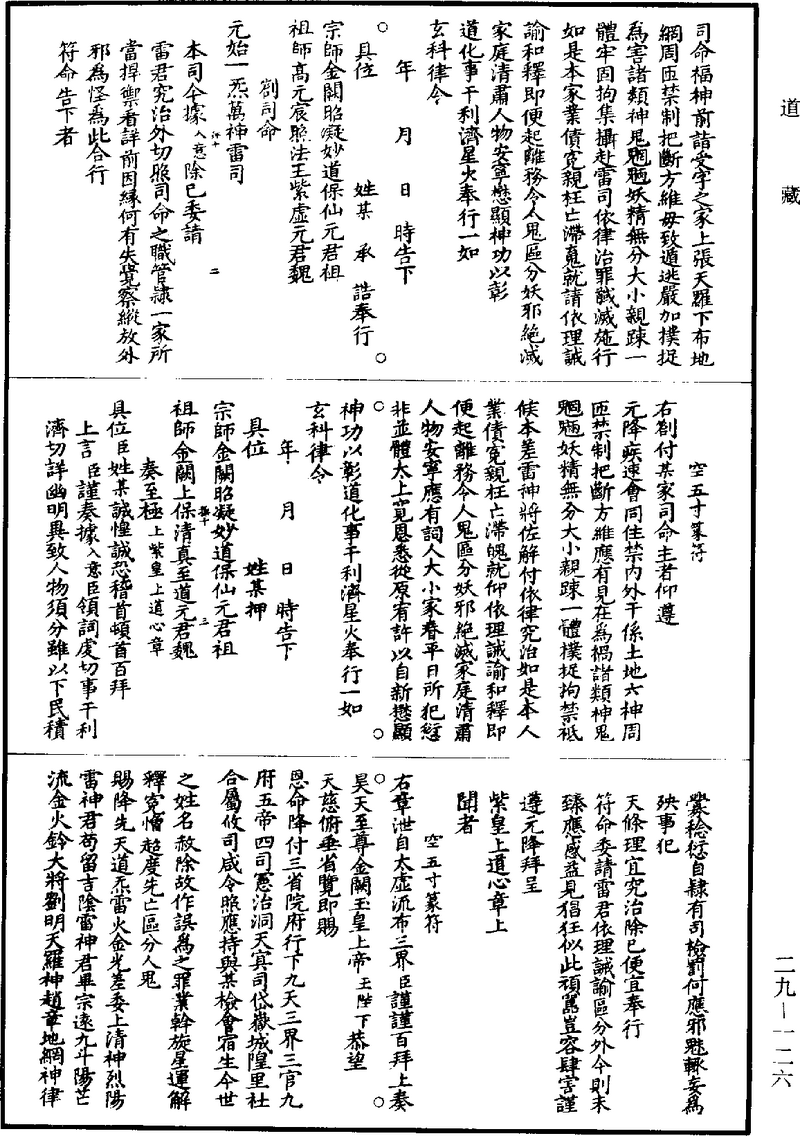 道藏
司命福神前詣受字之家上張天羅下布地
網周匝禁制把斷方維毋致遁逃嚴加撲捉
為害諸類神鬼魍魎妖精無分大小親踈一
體牢固拘集攝赴雷司依律治罪馘滅施行
如是本家業債冤親枉亡滯魂就請依理誡
諭和釋即便起離務令人鬼區分妖邪絕滅
家庭清肅人物安寧懋顯神功以彰
道化事干利濟星火奉行一如
玄科律令
年 月 日 時告下
具位 姓某 承 誥奉行
宗師金闕昭凝妙道保仙元君祖
祖師高元宸照法王紫虛元君魏
劄司命
元始一炁萬神雷司
本司今據入意除已委請
雷君究治外切照司命之職管隸一家所
當捍禦者詳前因緣何有失覺察縱放外
邪為怪為此合行
符命告下者
空五寸篆符
右劄付某家司命主者仰遵
元降疾速會同住禁內外干係土地六神周
匝禁制把斷方維應有見在為禍諸類神鬼
魍魎妖精無分大小親踈一體撲捉拘禁祗
候本差雷神將佐解付依律究治如是本人
業債冤親枉亡滯魄就仰依理誡諭和釋即
便起離務令人鬼區分妖邪絕滅家庭清肅
人物安寧應有詞人大小家眷平日所犯愆
非並體太上寬恩悉從原宥許以自新懋顯
神功以彰道化事干利濟星火奉行一如
玄科律令
年 月 日 時告下
具位 姓某押
宗師金闕昭凝妙道保仙元君祖
祖師金闕上保清真至道元君魏
奏至極上紫皇上道心章
具位臣姓某誠惶誠恐稽首頓首百拜
上言臣謹奏據入意臣領詞虔切事干利
濟切詳幽明異致人物須分雖以下民積
釁稔愆自隸有司檢罰何應邪魅輒妄為
殃事犯
天條理宜究治除已便宜奉行
符命委請雷君依理誡諭區分外今則未
臻應感益見猖狂似此頑駡豈容肆害謹
遵元降拜呈
紫皇上道心章上
聞者
空五寸篆符
右章泄自太虛流布三界臣謹謹百拜上奏
昊天至尊金闕玉皇上帝玉陛下恭望
天慈俯垂省覽即賜
恩命降付三省院府行下九天三界三官九
府五帝四司憲治洞天冥司岱嶽城隍里社
合屬攸司咸令照應特與某檢會宿生今世
之姓名赦除故作誤為之罪業幹旋星運解
釋冤憎超度先亡區分人鬼
賜降先天道炁雷火金光差委上清神烈陽
雷神君苟留吉陰雷神君畢宗遠九斗陽芒
流金火鈴大將劉明天羅神趙章地網神律
二九—一二六